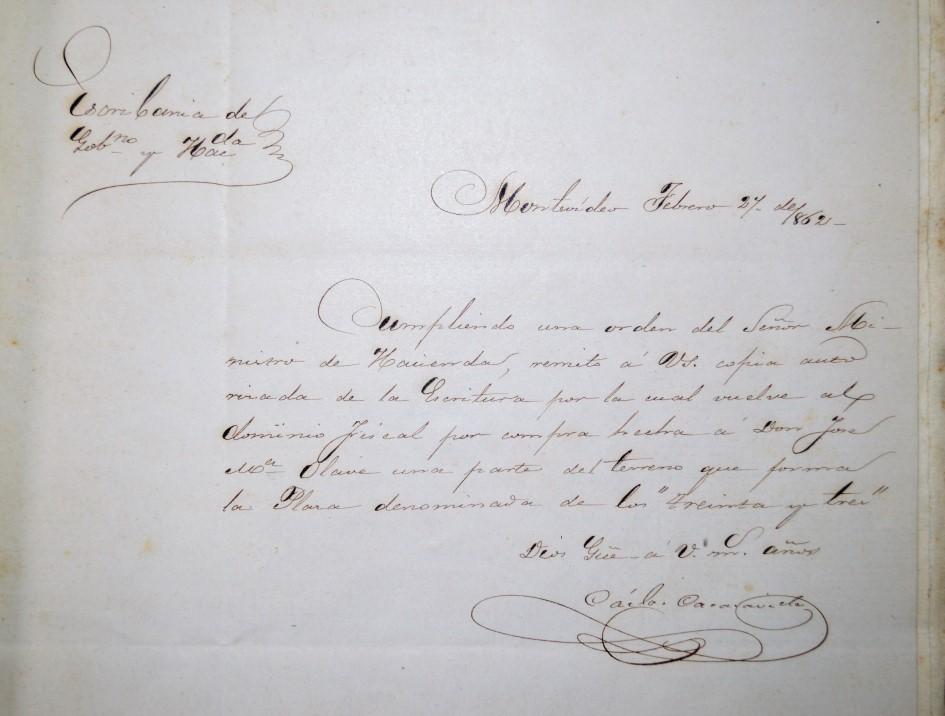 Escribania de
Gobno y Hacda
Montevideo Febrero 27 de 1862
Cumpliendo una orden del Señor Mi-
nistro de Hacienda, remito á VS. copia auto
rizada de la Escritura por la cual vuelve al
dominio Fiscal por compra hecha á Don Jose
Ma Olave una parte del terreno que forma
la Plaza denominada de los "treinta y tres"
Dios Güe á V. S. m. años